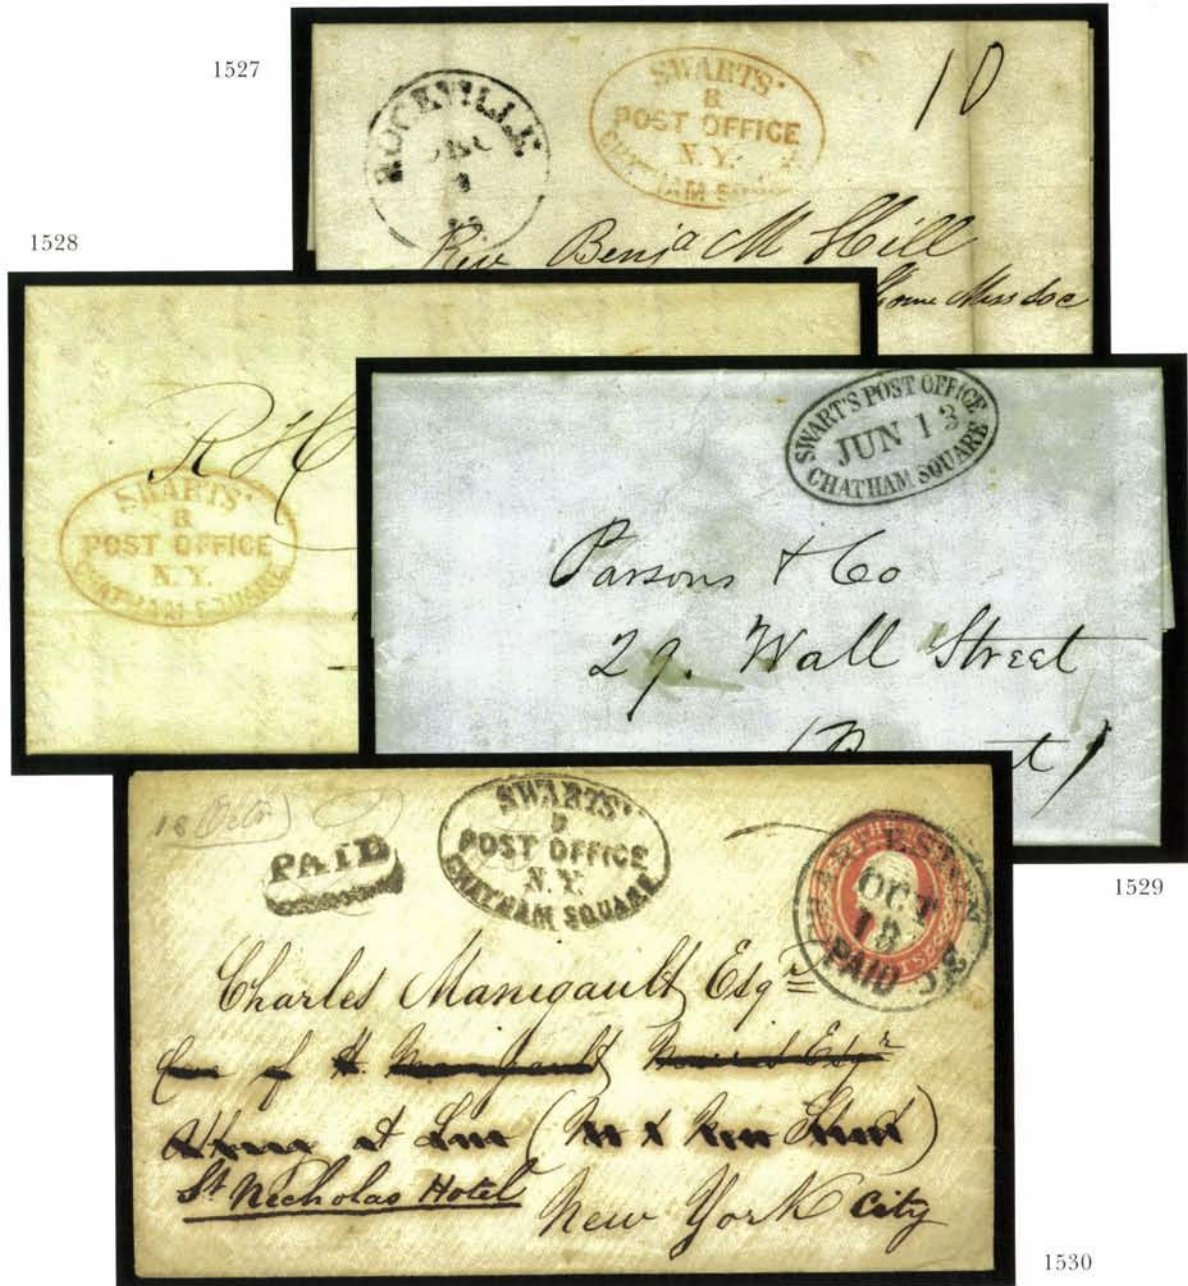 1527
ROCKVILLE
SWARTS'
B
POST OFFICE
N.Y.
CHATHAM SQUARE
10
Rev Benja M Hill
Home Miss Soc
1528
R H
SWARTS'
B
POST OFFICE
N.Y.
CHATHAM SQUARE
SWART'S POST OFFICE
JUN 13
CHATHAM SQUARE
Parsons & Co
29. Wall Street
1529
18 Octr
PAID
SWARTS'
B
POST OFFICE
N.Y.
CHATHAM SQUARE
OCT
18
PAID
Charles Manigault Esqr
Care of H. Manigault Morris Esqr
at
St Nicholas Hotel
New York City
1530